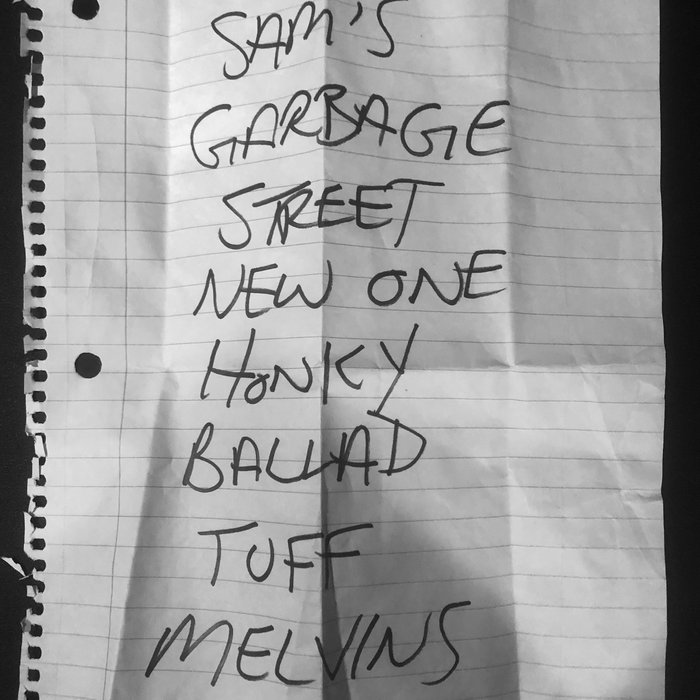 SAM'S
GARBAGE
STREET
NEW ONE
HONKY
BALLAD
TUFF
MELVINS